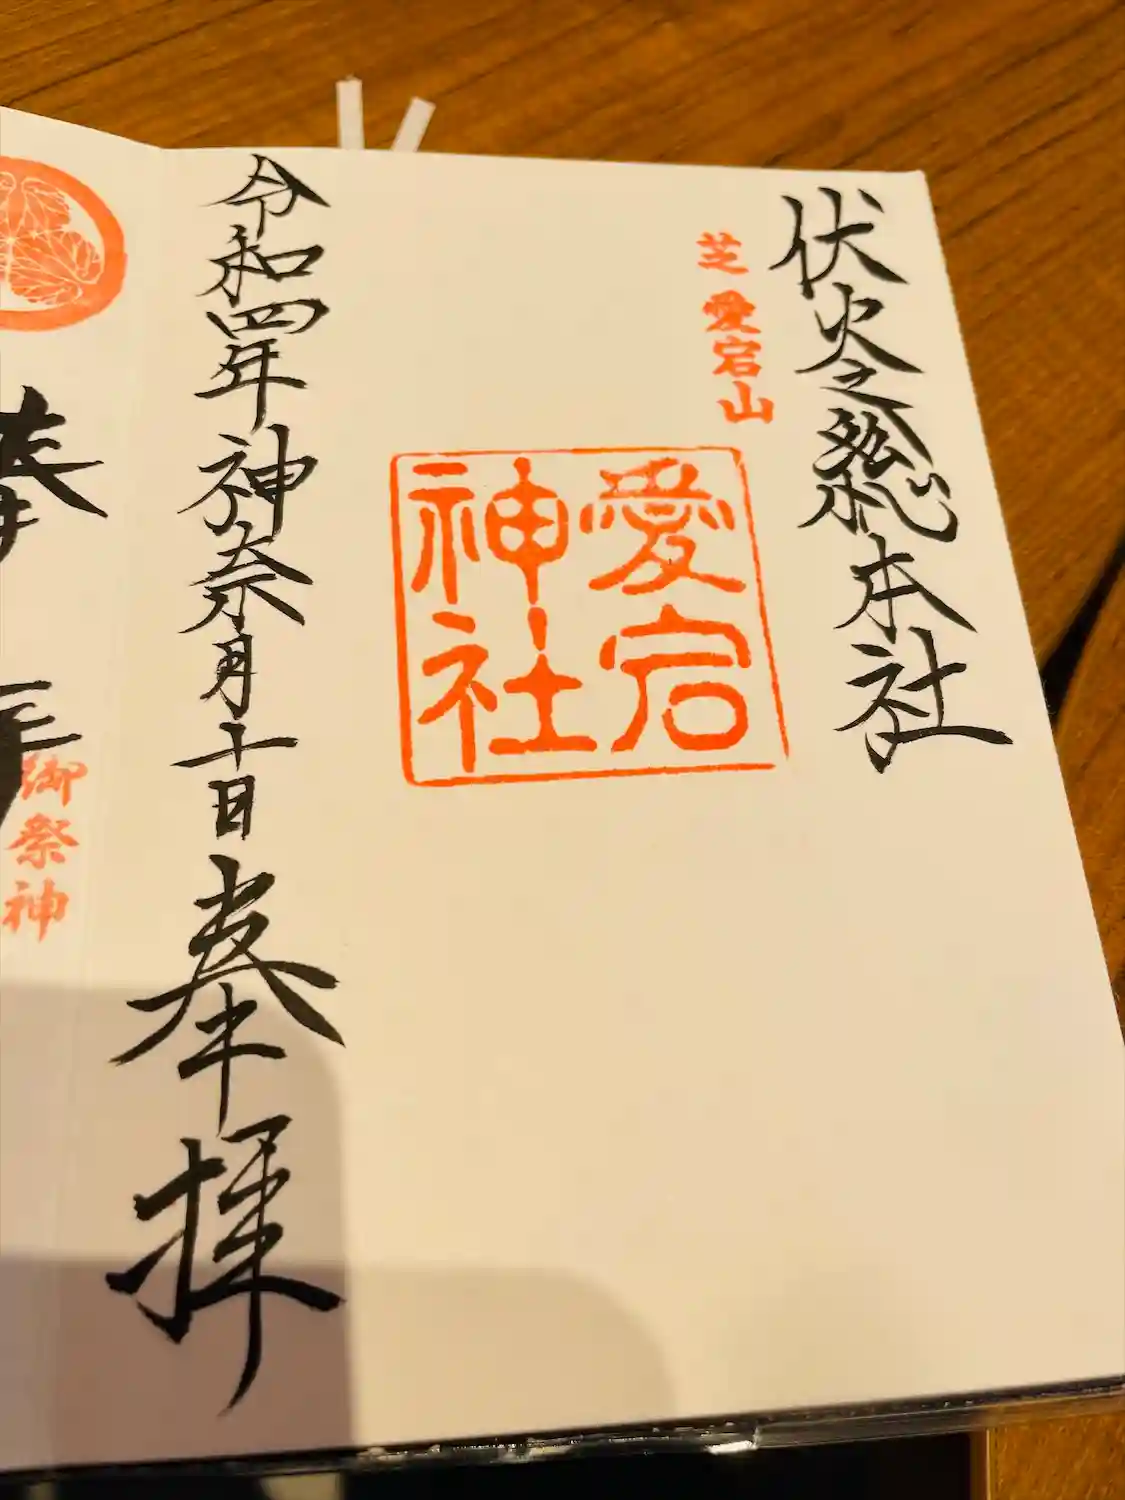 伏火之総本社
芝愛宕山
愛宕
神社
令和四年神奈月十日奉拝
奉
御祭神